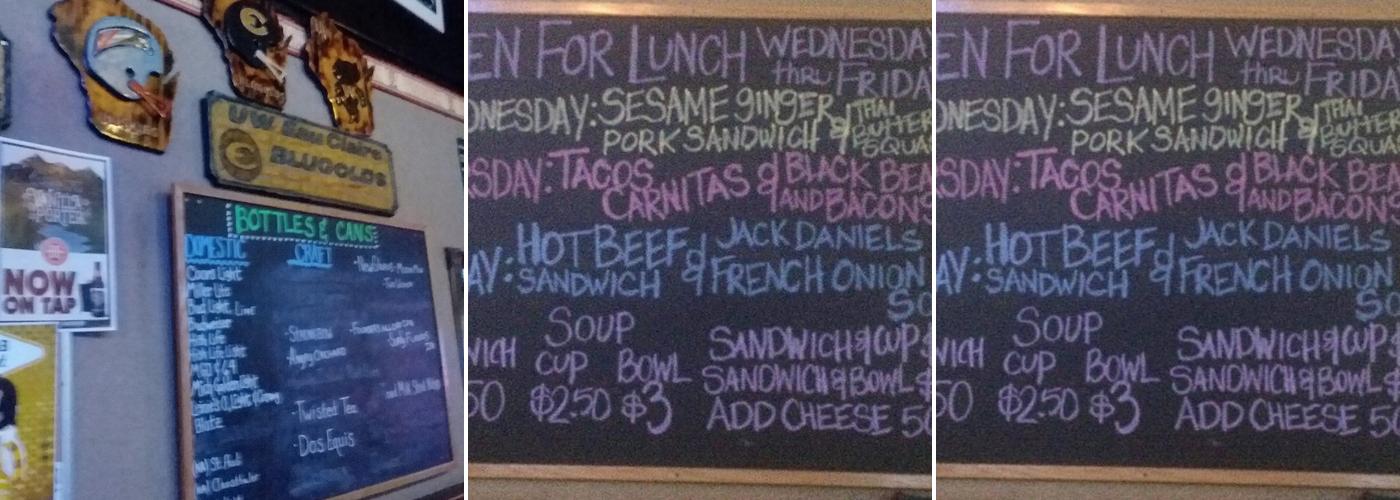 UW Eau Claire
BLUGOLDS
VANILLA
PORTER
NOW
ON TAP
BOTTLES & CANS
DOMESTIC
CRAFT
Coors Light
Miller Lite
Bud Light Lime
Budweiser
High Life
High Life Light
MGD 64
Blatz
-STRONGBOW
-Angry ORCHARD
-Twisted Tea
-Dos Equis
EN FOR LUNCH WEDNESDAY
thru FRIDA
DNESDAY: SESAME GINGER & THAI
PORK SANDWICH BUTTER
SQUA
SDAY: TACOS & BLACK BEA
CARNITAS AND BACON S
AY: HOT BEEF & JACK DANIELS
SANDWICH FRENCH ONION
SO
SOUP
WICH CUP BOWL SANDWICH & CUP
50 $2.50 $3 SANDWICH & BOWL $
ADD CHEESE 50
EN FOR LUNCH WEDNESDAY
thru FRIDA
DNESDAY: SESAME GINGER & THAI
PORK SANDWICH BUTTER
SQUA
SDAY: TACOS & BLACK BEA
CARNITAS AND BACON S
AY: HOT BEEF & JACK DANIELS
SANDWICH FRENCH ONION
SO
SOUP
WICH CUP BOWL SANDWICH & CUP
50 $2.50 $3 SANDWICH & BOWL $
ADD CHEESE 50